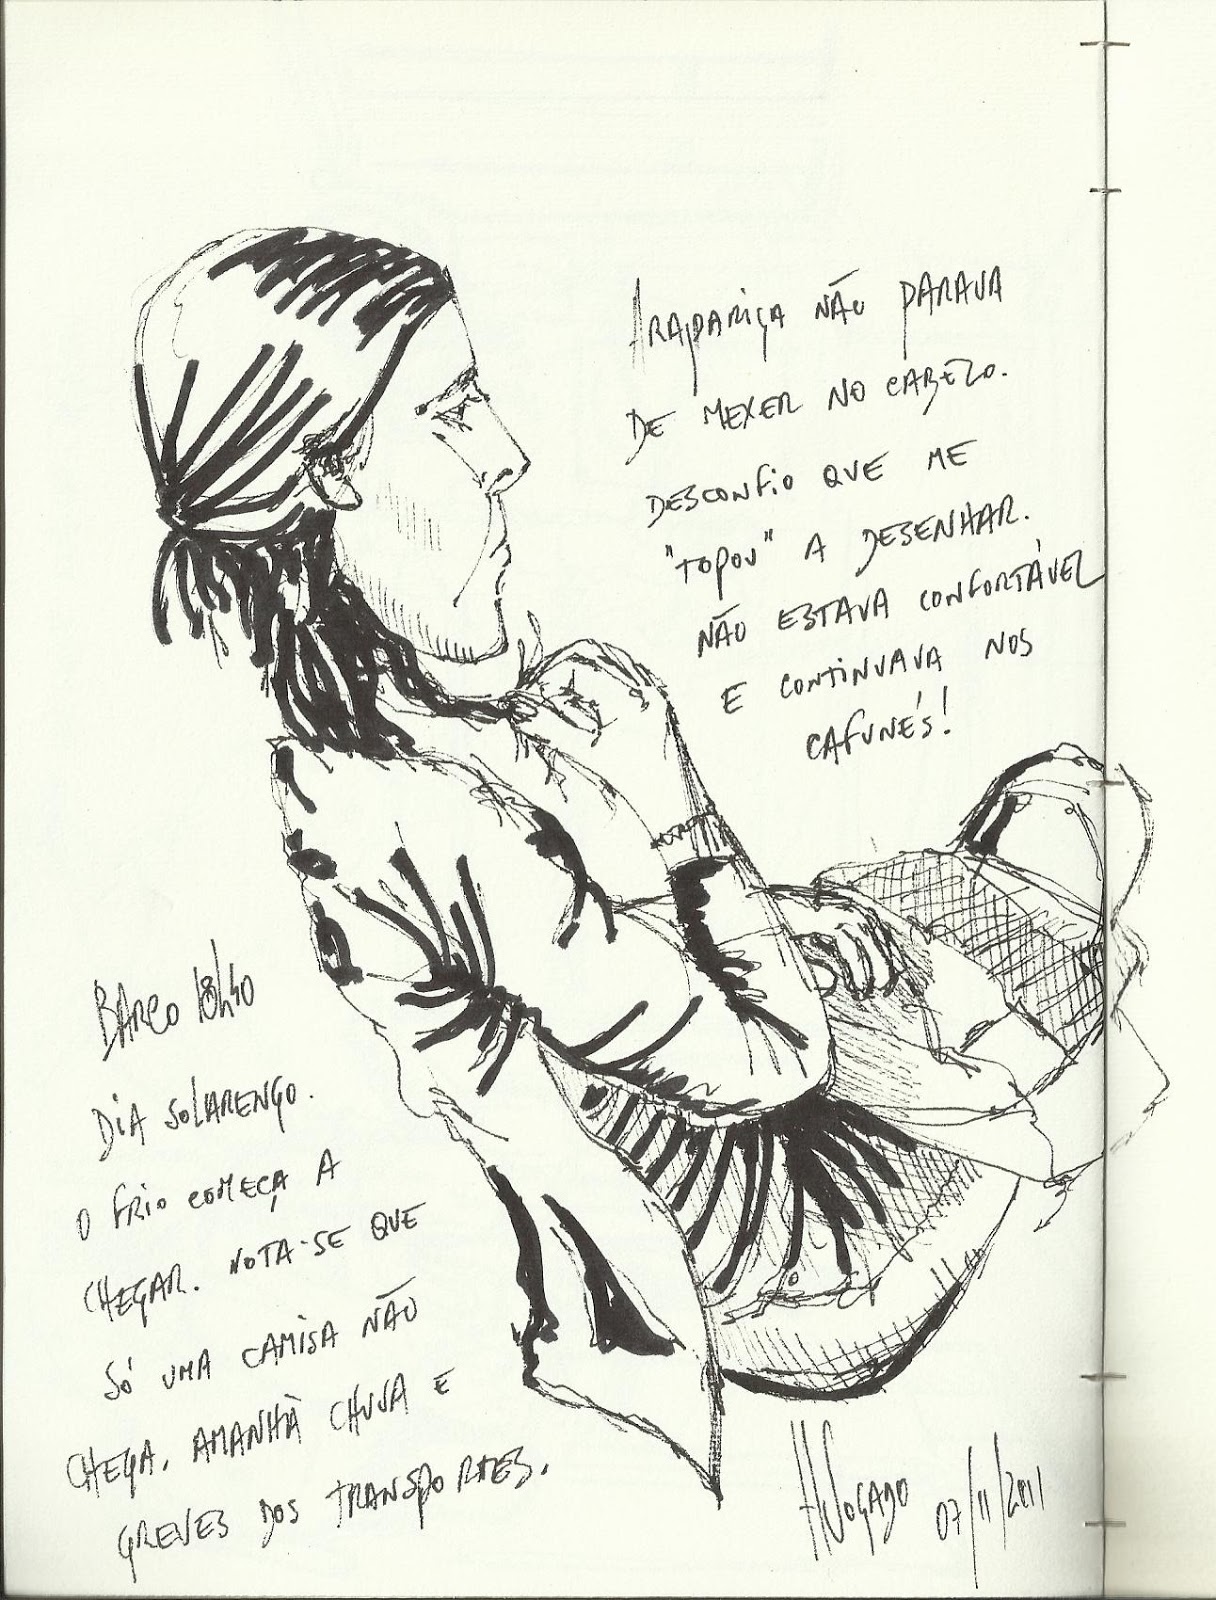 A RAPARIGA NÃO PARAVA
DE MEXER NO CABELO.
DESCONFIO QUE ME
"TOPOU" A DESENHAR.
NÃO ESTAVA CONFORTÁVEL
E CONTINUAVA NOS
CAFUNÉS!
BARCO 18h40
DIA SOLARENGO.
O FRIO COMEÇA A
CHEGAR. NOTA-SE QUE
SÓ UMA CAMISA NÃO
CHEGA. AMANHÃ CHUVA E
GREVES DOS TRANSPORTES.
07/11/2011